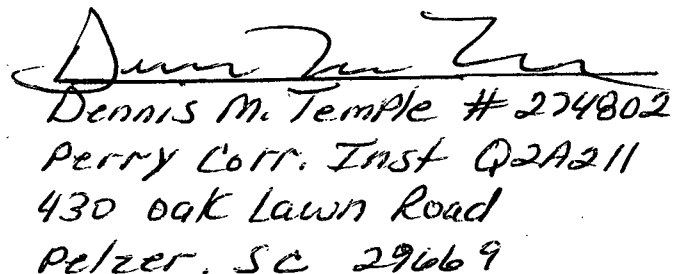 Dennis M. Temple # 274802
Perry Corr. Inst Q2A211
430 oak Lawn Road
Pelzer, SC 29669